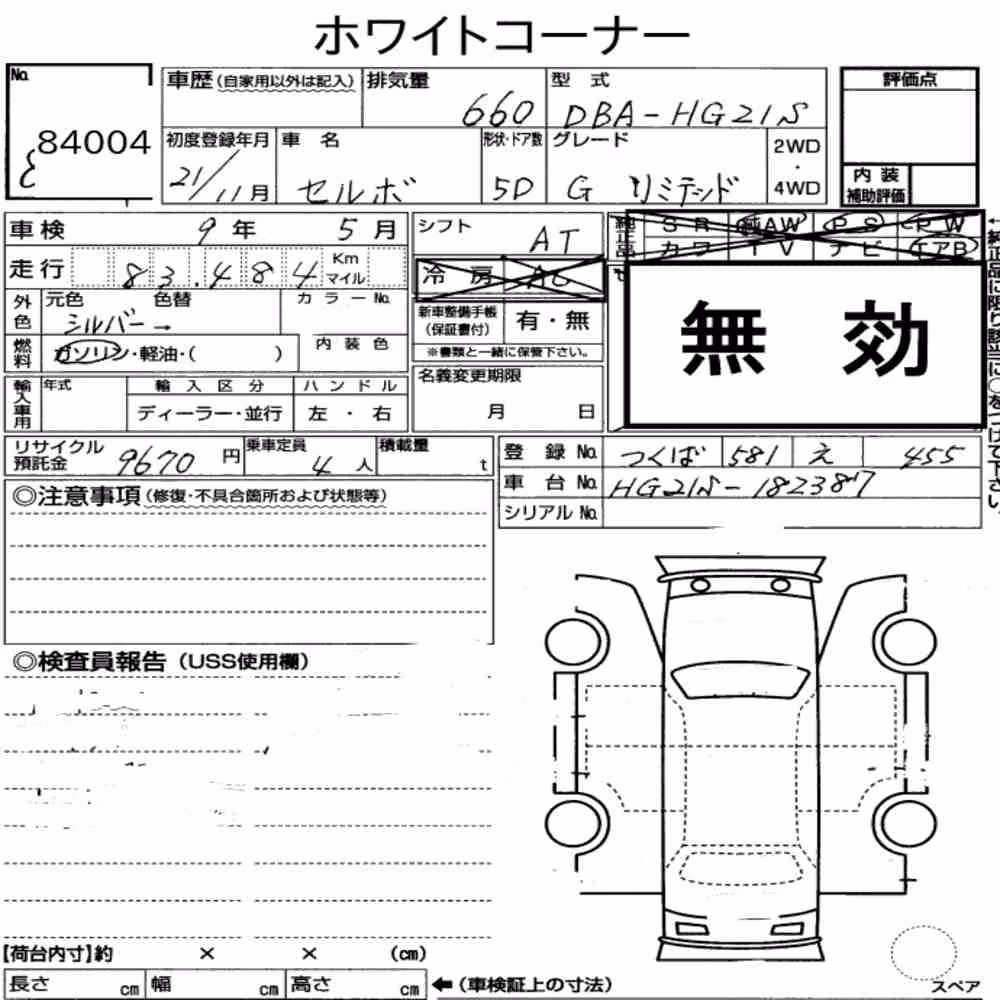 ホワイトコーナー
No. 84004
車歴(自家用以外は記入) 排気量 660 型式 DBA-HG21S 評価点
初度登録年月 21/11月 車名 セルボ 形状・ドア数 5D グレード G リミテッド 2WD・4WD
内装補助評価
車検 9年 5月 シフト AT 純正品 SR 純AW PS PW
走行 83,484 Km マイル 冷房 AC カワ TV ナビ エアB
外色 元色 シルバー→ 色替 カラーNo. 新車整備手帳(保証書付) 有・無
燃料 ガソリン・軽油・( ) 内装色 ※書類と一緒に保管下さい。
無効
←純正品に限り該当に○をつけて下さい。
輸入車用 年式 輸入区分 ディーラー・並行 ハンドル 左・右 名義変更期限 月 日
リサイクル預託金 9670円 乗車定員 4人 積載量 t 登録No. つくば 581 え 455
車台No. HG21S-182387
シリアルNo.
◎注意事項(修復・不具合箇所および状態等)
◎検査員報告(USS使用欄)
【荷台内寸】約 × × (cm)
長さ cm 幅 cm 高さ cm ←(車検証上の寸法)
スペア